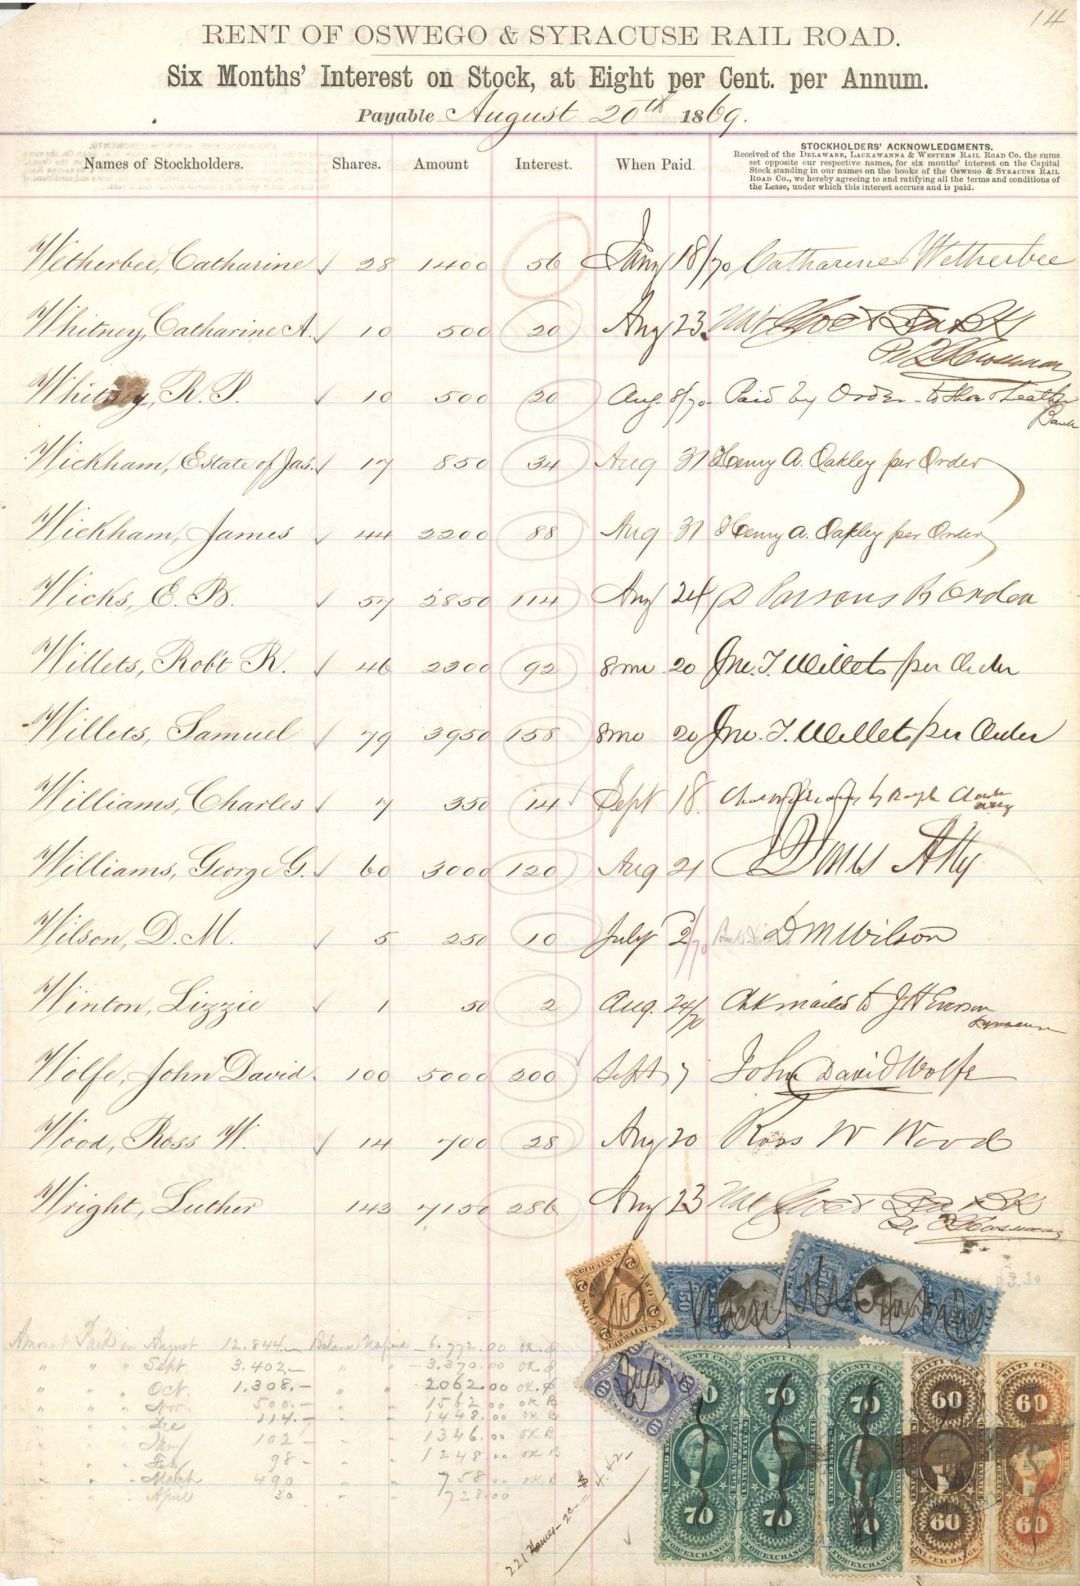 14
RENT OF OSWEGO & SYRACUSE RAIL ROAD.
Six Months' Interest on Stock, at Eight per Cent. per Annum.
Payable August 20th 1869.
Names of Stockholders. Shares. Amount Interest. When Paid.
STOCKHOLDERS' ACKNOWLEDGMENTS.
Received of the DELAWARE, LACKAWANNA & WESTERN RAIL ROAD CO. the sums
set opposite our respective names, for six months' interest on the Capital
Stock standing in our names on the books of the OSWEGO & SYRACUSE RAIL
ROAD CO., we hereby agreeing to and ratifying all the terms and conditions of
the Lease, under which this interest accrues and is paid.
Wetherbee, Catharine √ 28 1400 56 Jany 18/70 Catharine Wetherbee
Whitney, Catharine A. √ 10 500 20 Aug 23
Whitney, R. P. √ 10 500 20 Aug. 8/70 Paid by Order to Shoe & Leather
Bank
Wickham, Estate of Jas. √ 17 850 34 Aug 31 Henry A. Oakley per Order
Wickham, James √ 44 2200 88 Aug 31 Henry A. Oakley per Order
Wicks, E. B. √ 57 2850 114 Aug 24 D Parsons Pr Order
Willets, Robt R. √ 46 2300 92 8mo 20 Jno. T. Willets per Order
Willets, Samuel √ 79 3950 158 8mo 20 Jno. T. Willets per Order
Williams, Charles √ 7 350 14 √ Sept 18.
Williams, George G. √ 60 3000 120 Aug 21 Atty
Wilson, D. M. √ 5 250 10 July 2/70 D M Wilson
Winton, Lizzie √ 1 50 2 Aug. 24/70 Chk mailed to J H Everson
Syracuse
Wolfe, John David. 100 5000 200 √ Sept 7 John David Wolfe
Wood, Ross W. √ 14 700 28 Aug 20 Ross W Wood
Wright, Luther 143 7150 286 Aug 23
Amount Paid in August 12.844.— Balance Unpaid 6.772.00 OK.
" " " Sept 3.402.— " " 3.370.00 OK.
" " " Oct. 1.308.— " " 2062.00 OK.
" " " Nov 500.— 1562.00 OK
" " " Dec 114.— 1448.00 OK
" " " Jany 102— 1346.00 OK
" " " Feb 98— 1248.00 OK
" " " March 490 758.00 OK
" " " April 30 728.00
221 Names
70 70 70 60 60
70 70 70 60 60